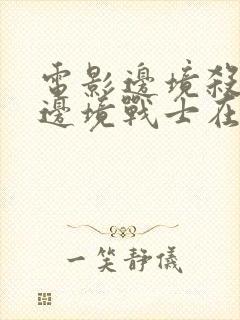 電影邊境殺
邊境戰士在
一笑靜儀